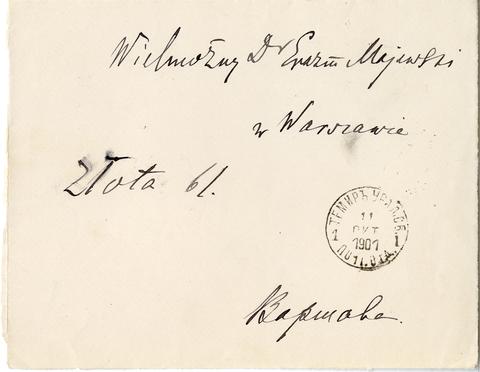 Wielmożny Dr Erazm Majewski
w Warszawie
Złota 61.
ТЕМИРЪ УРАЛ. ОБ.
1 11 1
ОКТ
1901
ПОЧ. ОТД.
Варшава.